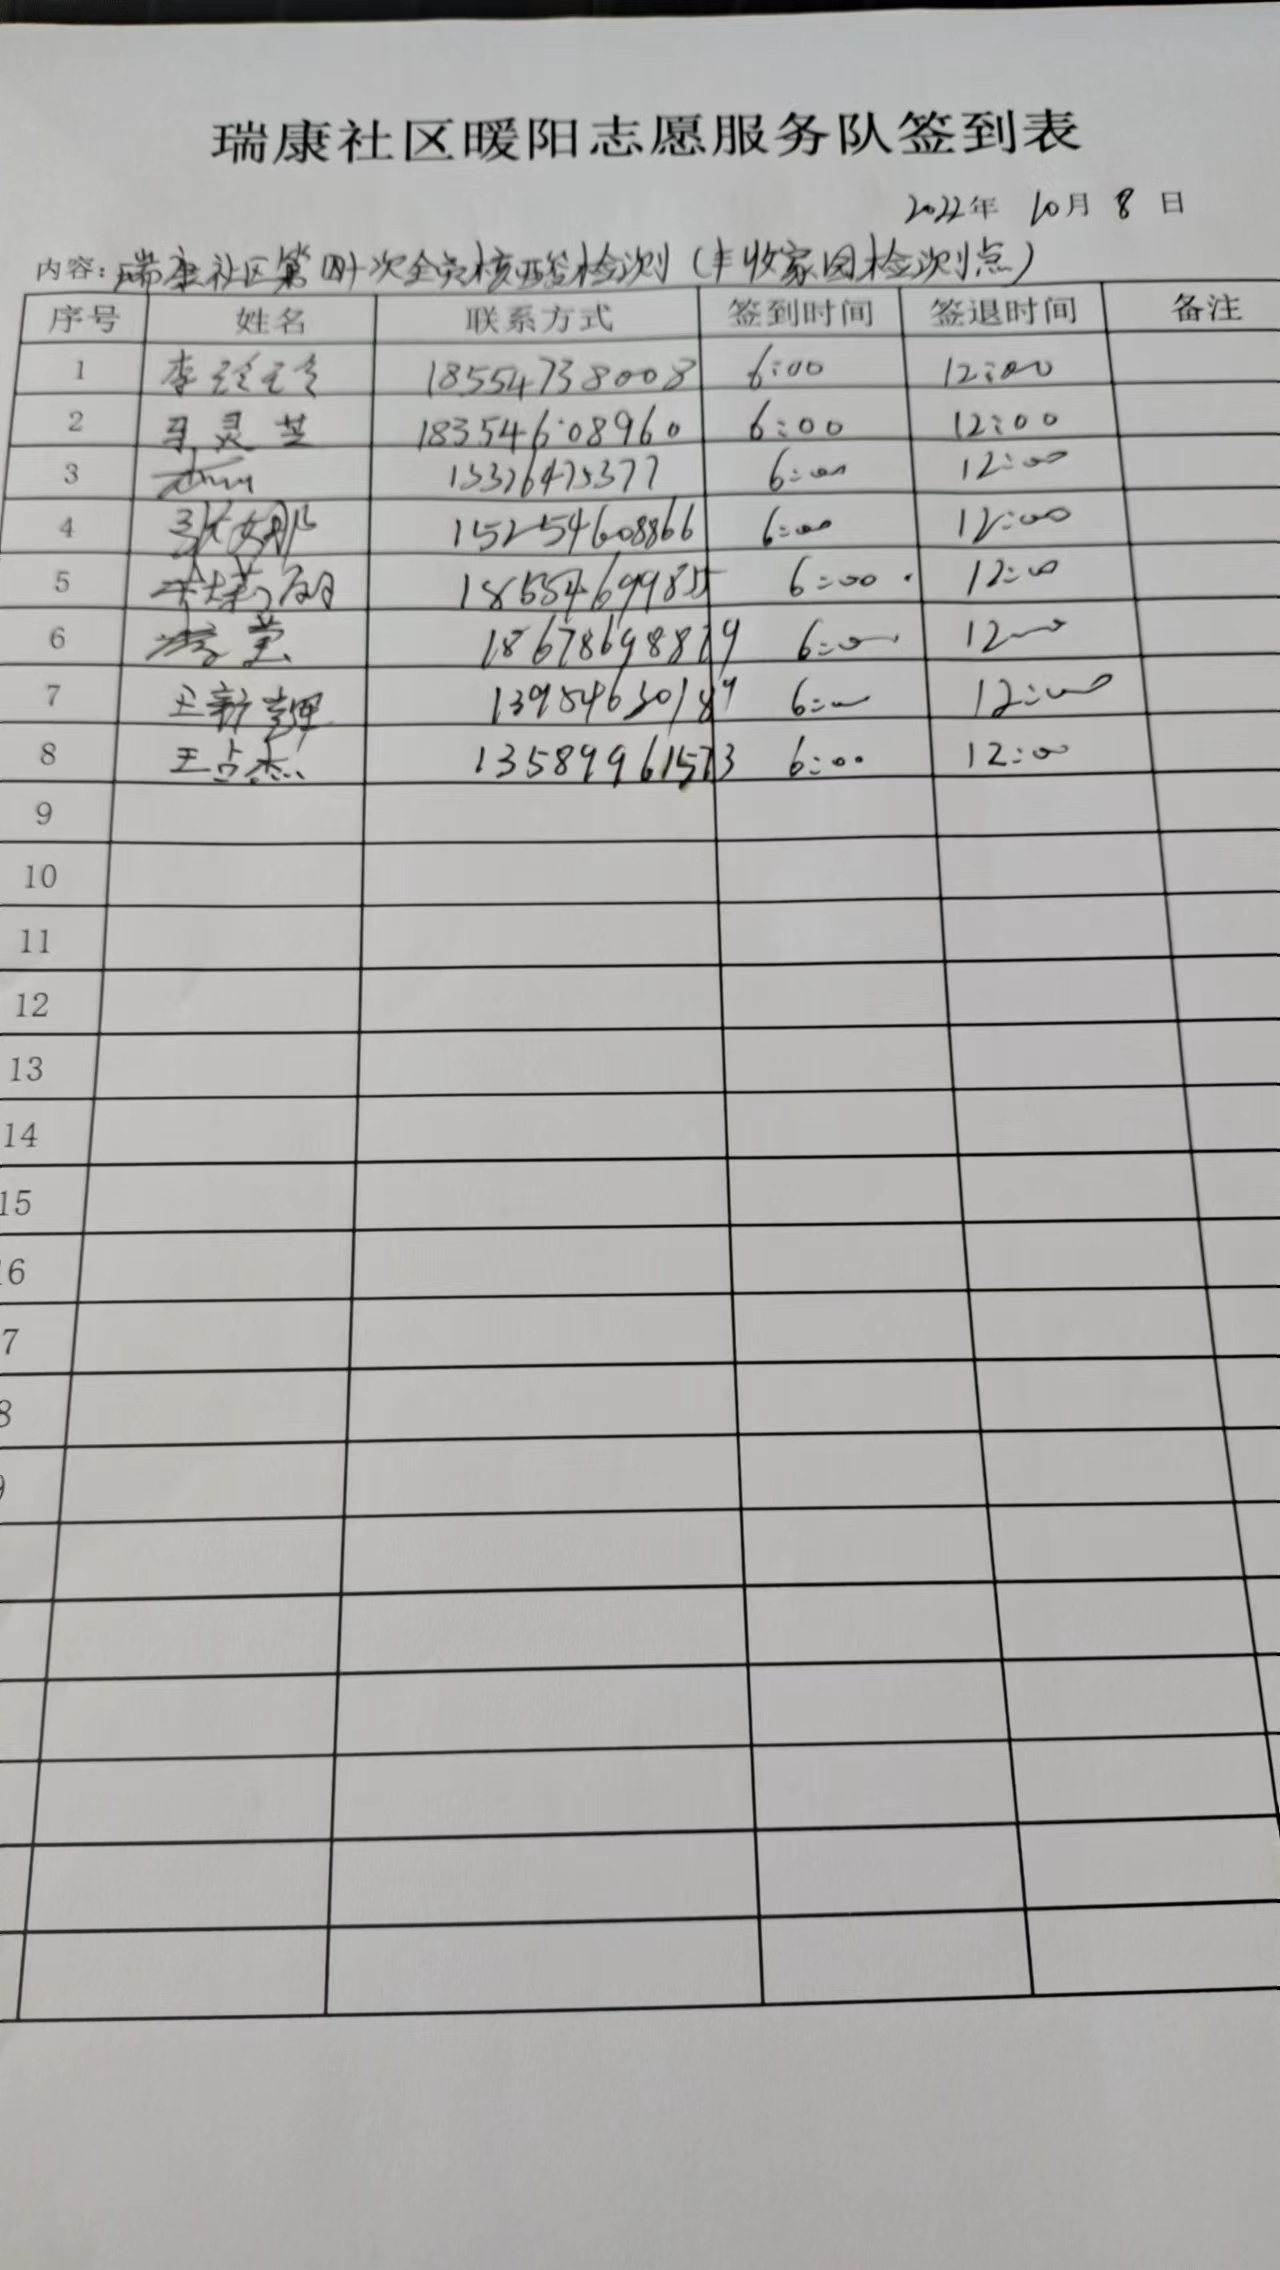 瑞康社区暖阳志愿服务队签到表
2022年 10月 8 日
内容：瑞康社区第四十次全员核酸检测(丰收家园检测点)
序号 姓名 联系方式 签到时间 签退时间 备注
1 李玲玲 18554738008 6:00 12:00
2 马灵芝 18354608960 6:00 12:00
3 6:00 12:00
4 张娜 15254608866 6:00 12:00
5 6:00 12:00
6 6:00 12:00
7 王新 6:00 12:00
8 王占杰 13589961573 6:00 12:00
9
10
11
12
13
14
15
16
7
8
9